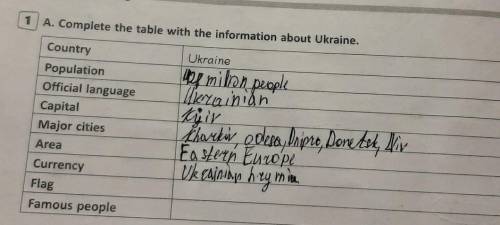 1 A. Complete the table with the information about Ukraine.
Country Ukraine
Population million people
Official language Ukrainian
Capital Kyiv
Major cities Kharkiv, Odesa, Dnipro, Donetsk, Lviv
Area Eastern Europe
Currency Ukrainian hrymia
Flag
Famous people